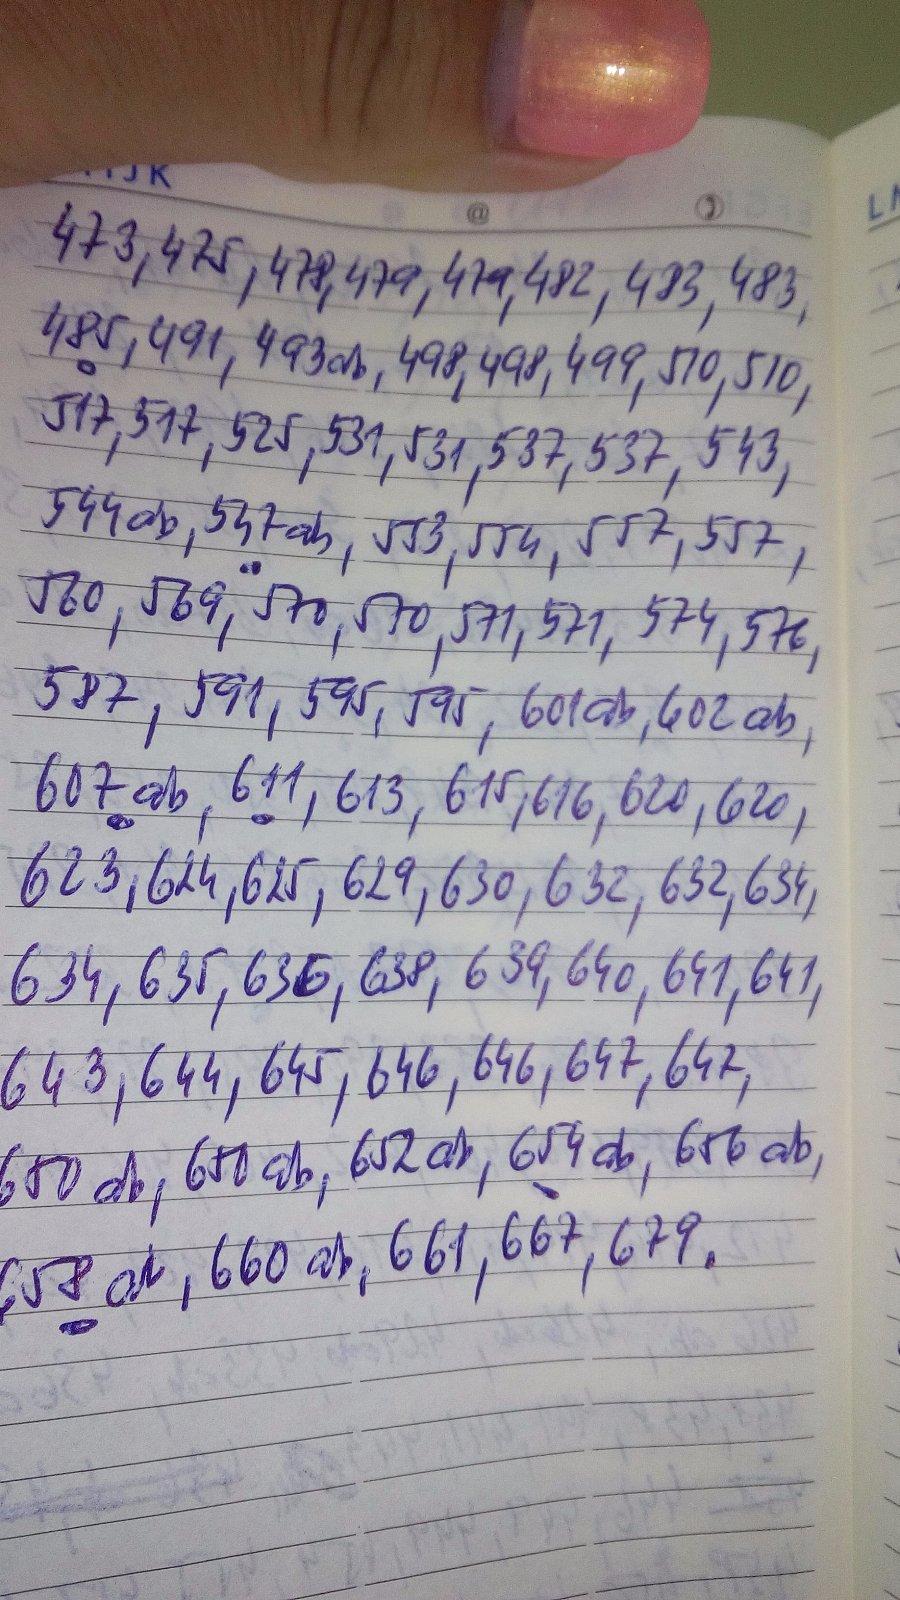 IJK
@
LM
473, 475, 478, 479, 479, 482, 483, 483,
485, 491, 493ab, 498, 498, 499, 510, 510,
517, 517, 525, 531, 531, 537, 537, 543,
544ab, 547ab, 553, 554, 557, 557,
560, 569, 570, 570, 571, 571, 574, 576,
587, 591, 595, 595, 601ab, 602ab,
607ab, 611, 613, 615, 616, 620, 620,
623, 624, 625, 629, 630, 632, 632, 634,
634, 635, 636, 638, 639, 640, 641, 641,
643, 644, 645, 646, 646, 647, 647,
650ab, 650ab, 652ab, 654ab, 656ab,
658ab, 660ab, 661, 667, 679.